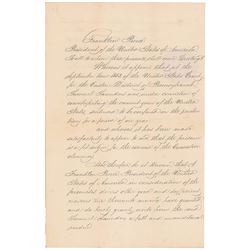 Franklin Pierce
President of the United States of America,
To all to whom these presents shall come, Greeting:
Whereas it appears that at the
September term 1853 of the United States Court
for the Eastern District of Pennsylvania
Samuel Saunders was under conviction of
counterfeiting the current coin of the United
States, sentenced to be confined in the peniten-
tiary for a period of one year
and whereas it has been made
satisfactorily to appear to me that the prisoner
is a fit subject for the exercise of the Executive
clemency
Now therefore be it known, that I
Franklin Pierce President of the United
States of America in consideration of the
premises divers other good and sufficient
reasons me thereunto moving have granted
and do hereby grant unto him the said
Samuel Saunders a full and unconditional
pardon